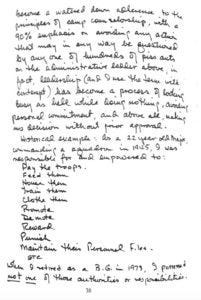 become a watered down adherence to the
principles of camp counselorship, with a
90% emphasis on avoiding any action
that may in any way be questioned
by any one of hundreds of piss ants
on the administrative ladder above, in
fact, leadership (and I use the term with
contempt) has become a process of looking
busy as hell while doing nothing, avoiding
personal commitment, and above all making
no decision without prior approval.
Historical example: As a 22-year old Major
commanding a squadron in 1945, I was
responsible for and empowered to:
Pay the troops.
Feed them
House them
Train them
Clothe them
Promote
Demote
Reward
Punish
Maintain their Personnel Files.
etc
When I retired as a B.G. in 1973, I possessed
not one of those authorities or responsibilities.
38